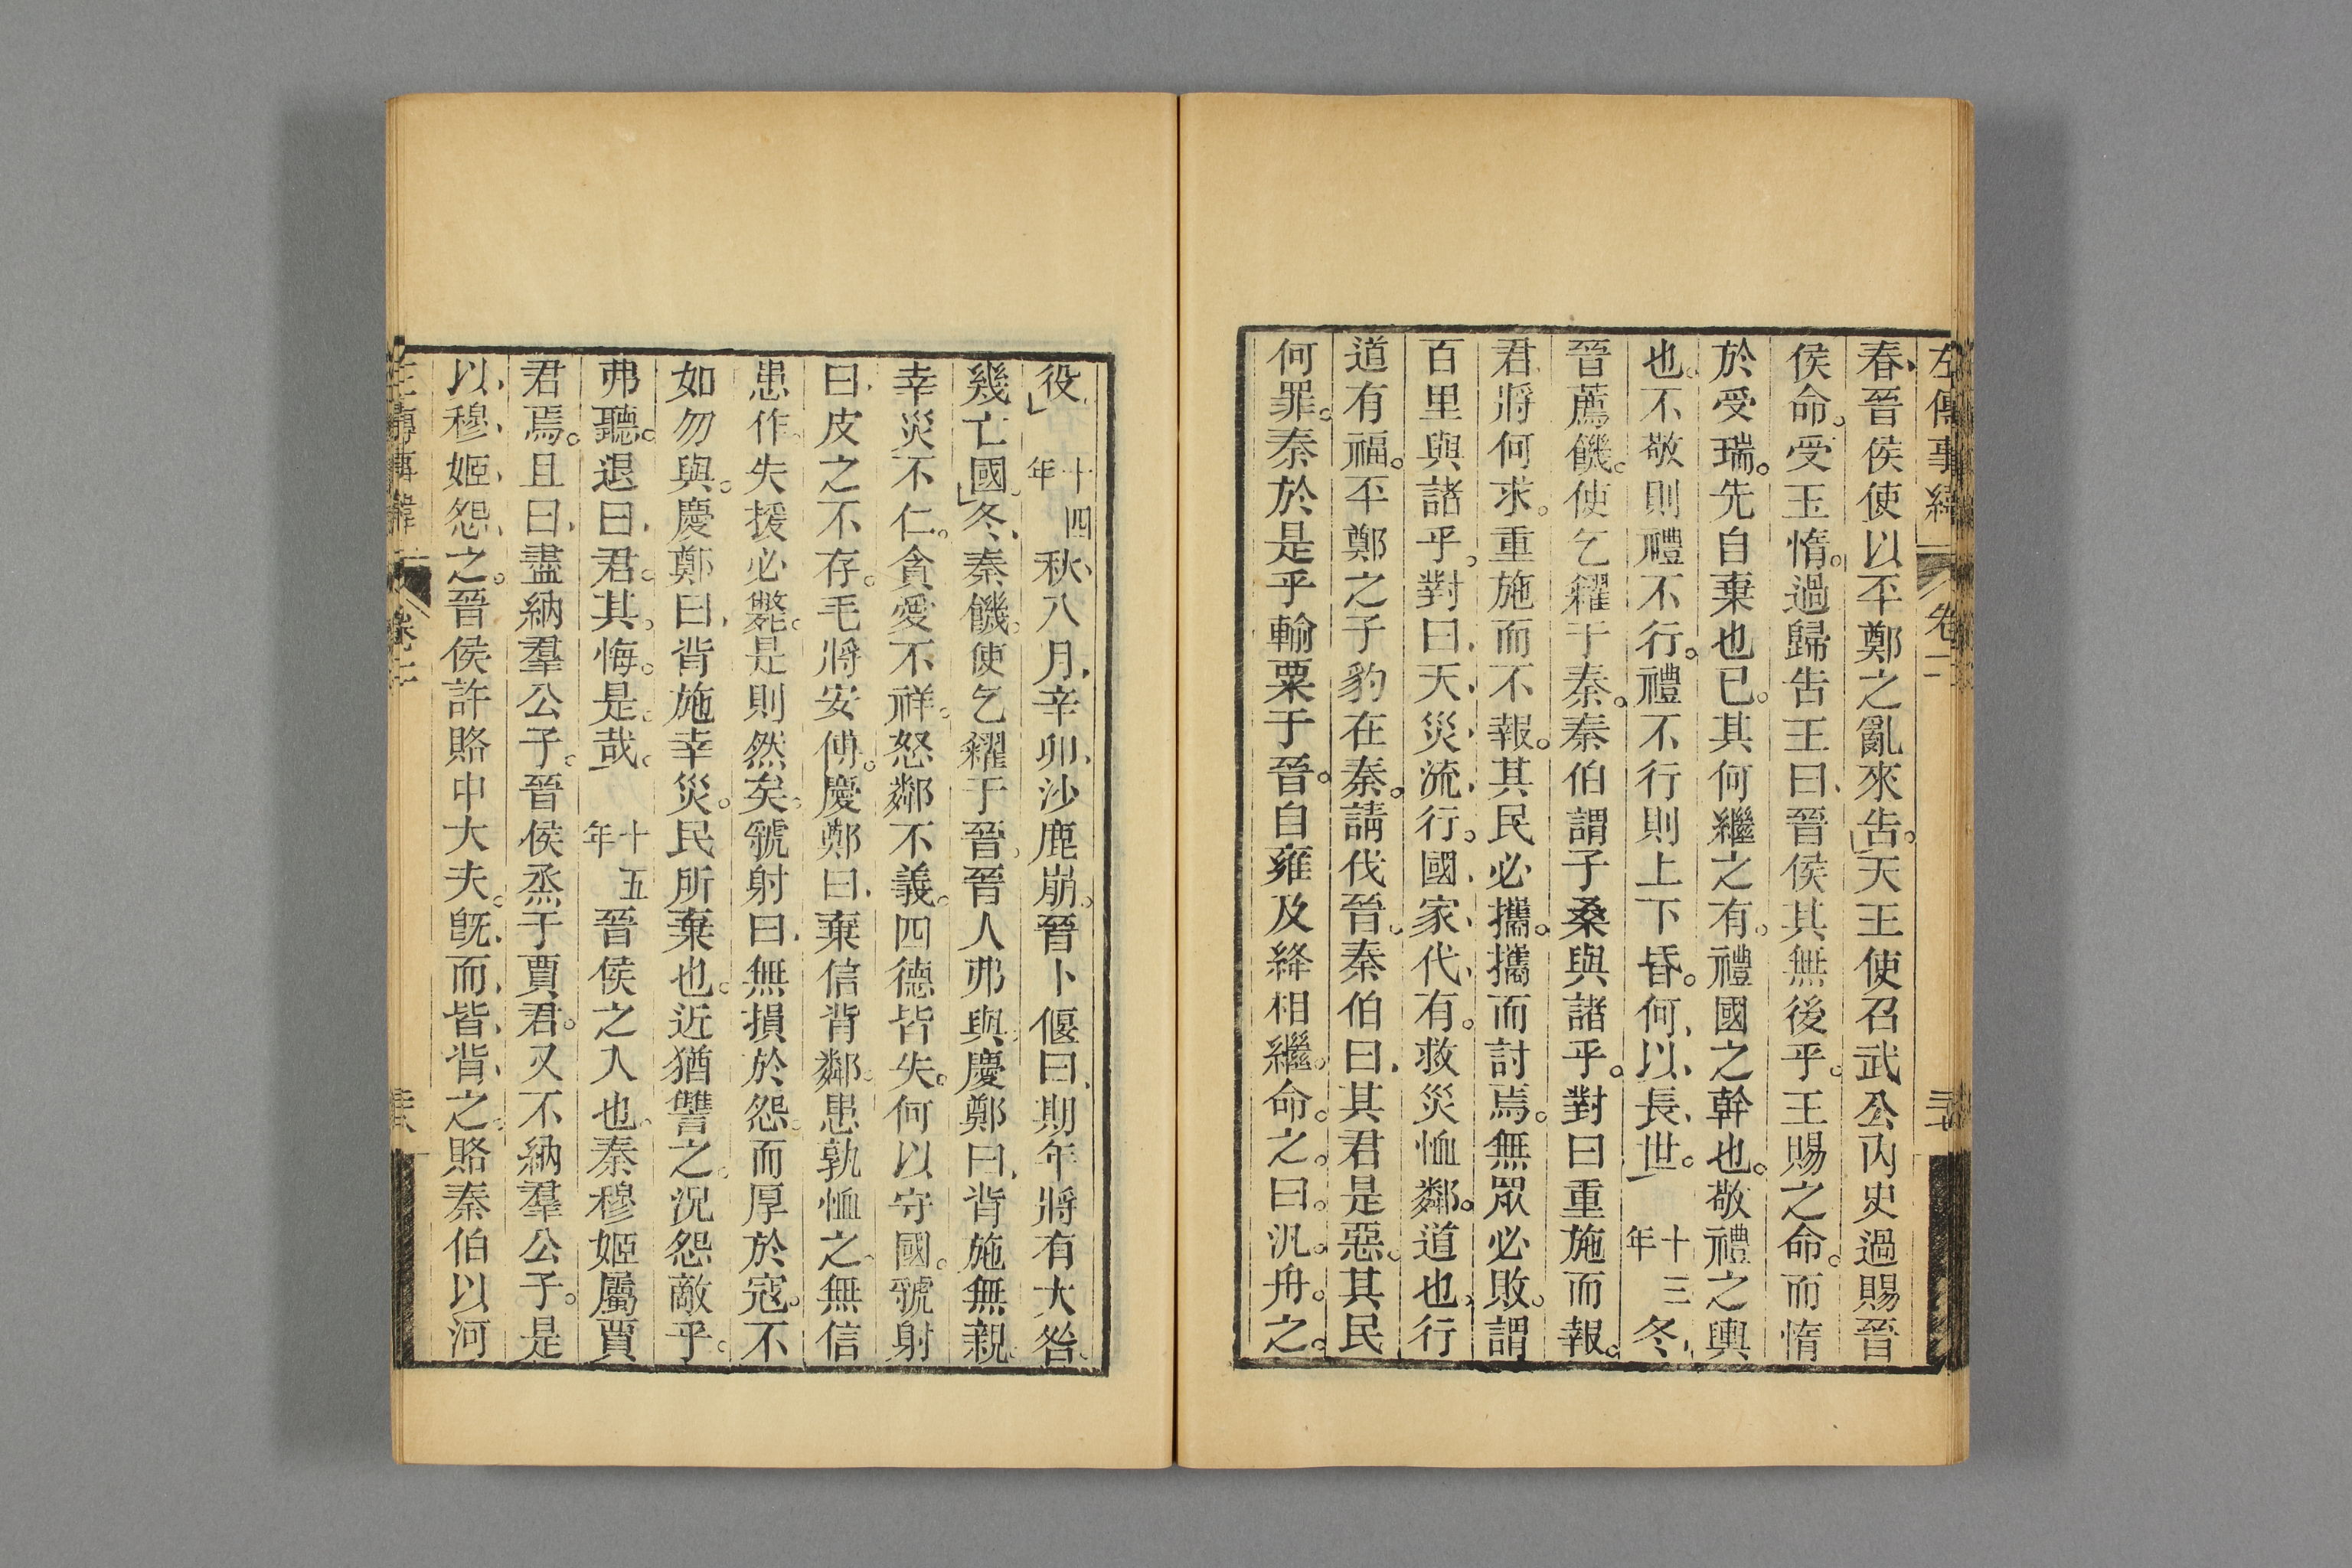 左傳事緯 卷二
春晉侯使以㔻鄭之亂來告天王使召武公內史過賜晉
侯命。受玉惰。過歸告王曰晉侯其無後乎。王賜之命。而惰
於受瑞。先自棄也已。其何繼之有。禮國之幹也。敬禮之輿
也。不敬則禮不行。禮不行則上下昏。何以長世。十三年冬
晉薦饑。使乞糴于秦。秦伯謂子桑與諸乎。對曰重施而報。
君將何求。重施而不報。其民必攜。攜而討焉。無眾必敗。謂
百里與諸乎。對曰天災流行。國家代有。救災恤鄰。道也行
道有福。㔻鄭之子豹在秦。請伐晉。秦伯曰其君是惡。其民
何罪。秦於是乎輸粟于晉。自雍及絳相繼。命之曰汎舟之
役十四年秋八月辛卯沙鹿崩。晉卜偃曰期年將有大咎。
幾亡國。冬秦饑。使乞糴于晉。晉人弗與。慶鄭曰背施無親。
幸災不仁。貪愛不祥。怒鄰不義。四德皆失。何以守國。虢射
曰皮之不存。毛將安傅。慶鄭曰棄信背鄰。患孰恤之。無信
患作。失援必斃。是則然矣。虢射曰無損於怨。而厚於寇。不
如勿與。慶鄭曰背施幸災。民所棄也。近猶讐之。況怨敵乎。
弗聽。退曰君其悔是哉。十五年晉侯之入也。秦穆姬屬賈
君焉。且曰盡納羣公子。晉侯烝于賈君。又不納羣公子。是
以穆姬怨之。晉侯許賂中大夫。既而皆背之。賂秦伯以河
左傳事緯 卷二